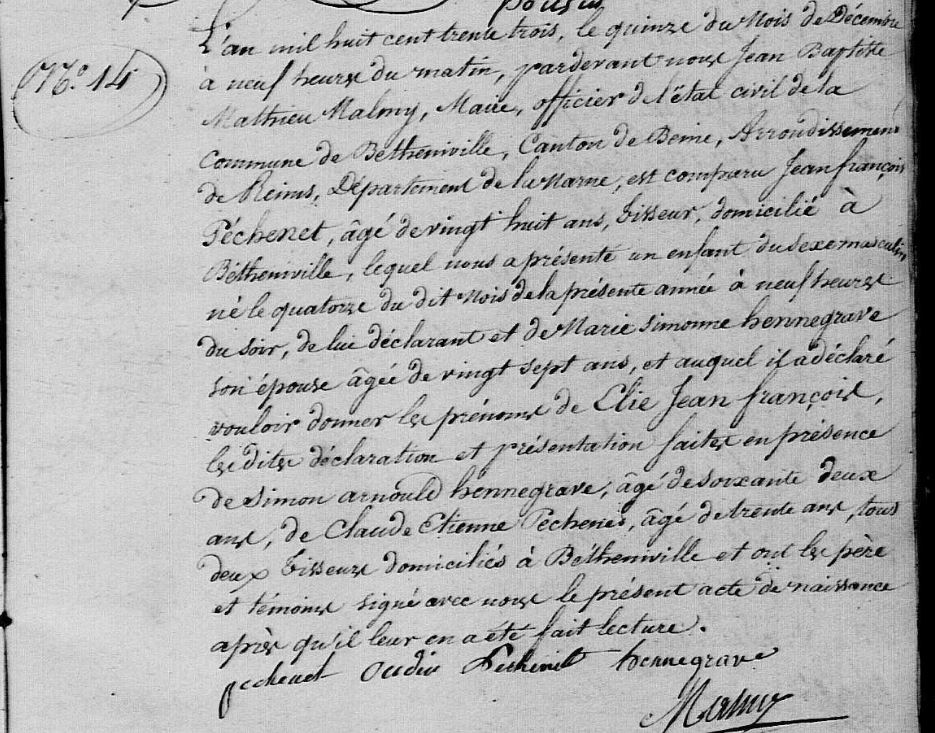 N.º 14
L'an mil huit cent trente trois, le quinze du Mois de Décembre
à neuf heures du matin, pardevant nous Jean Baptiste
Mathieu Malmy, Maire, officier de l'état civil de la
Commune de Bétheniville, Canton de Beine, Arrondissement
de Reims, Département de la Marne, est comparu Jean françois
Péchenet, âgé de vingt huit ans, tisseur, domicilié à
Bétheniville, lequel nous a présenté un enfant du sexe masculin
né le quatorze du dit Mois de la présente année à neuf heures
du soir, de lui déclarant et de Marie simonne hennegrave
son épouse âgée de vingt sept ans, et auquel il a déclaré
vouloir donner les prénoms de Elie Jean françois,
les dites déclaration et présentation faites en présence
de simon arnould hennegrave, âgé de soixante deux
ans, de Claude Etienne Pechenet, âgé de trente ans, tous
deux tisseurs domiciliés à Bétheniville et ont les père
et témoins signé avec nous le présent acte de naissance
après qu'il leur en a été fait lecture.
pechenet Oudin Pechenet hennegrave
Malmy